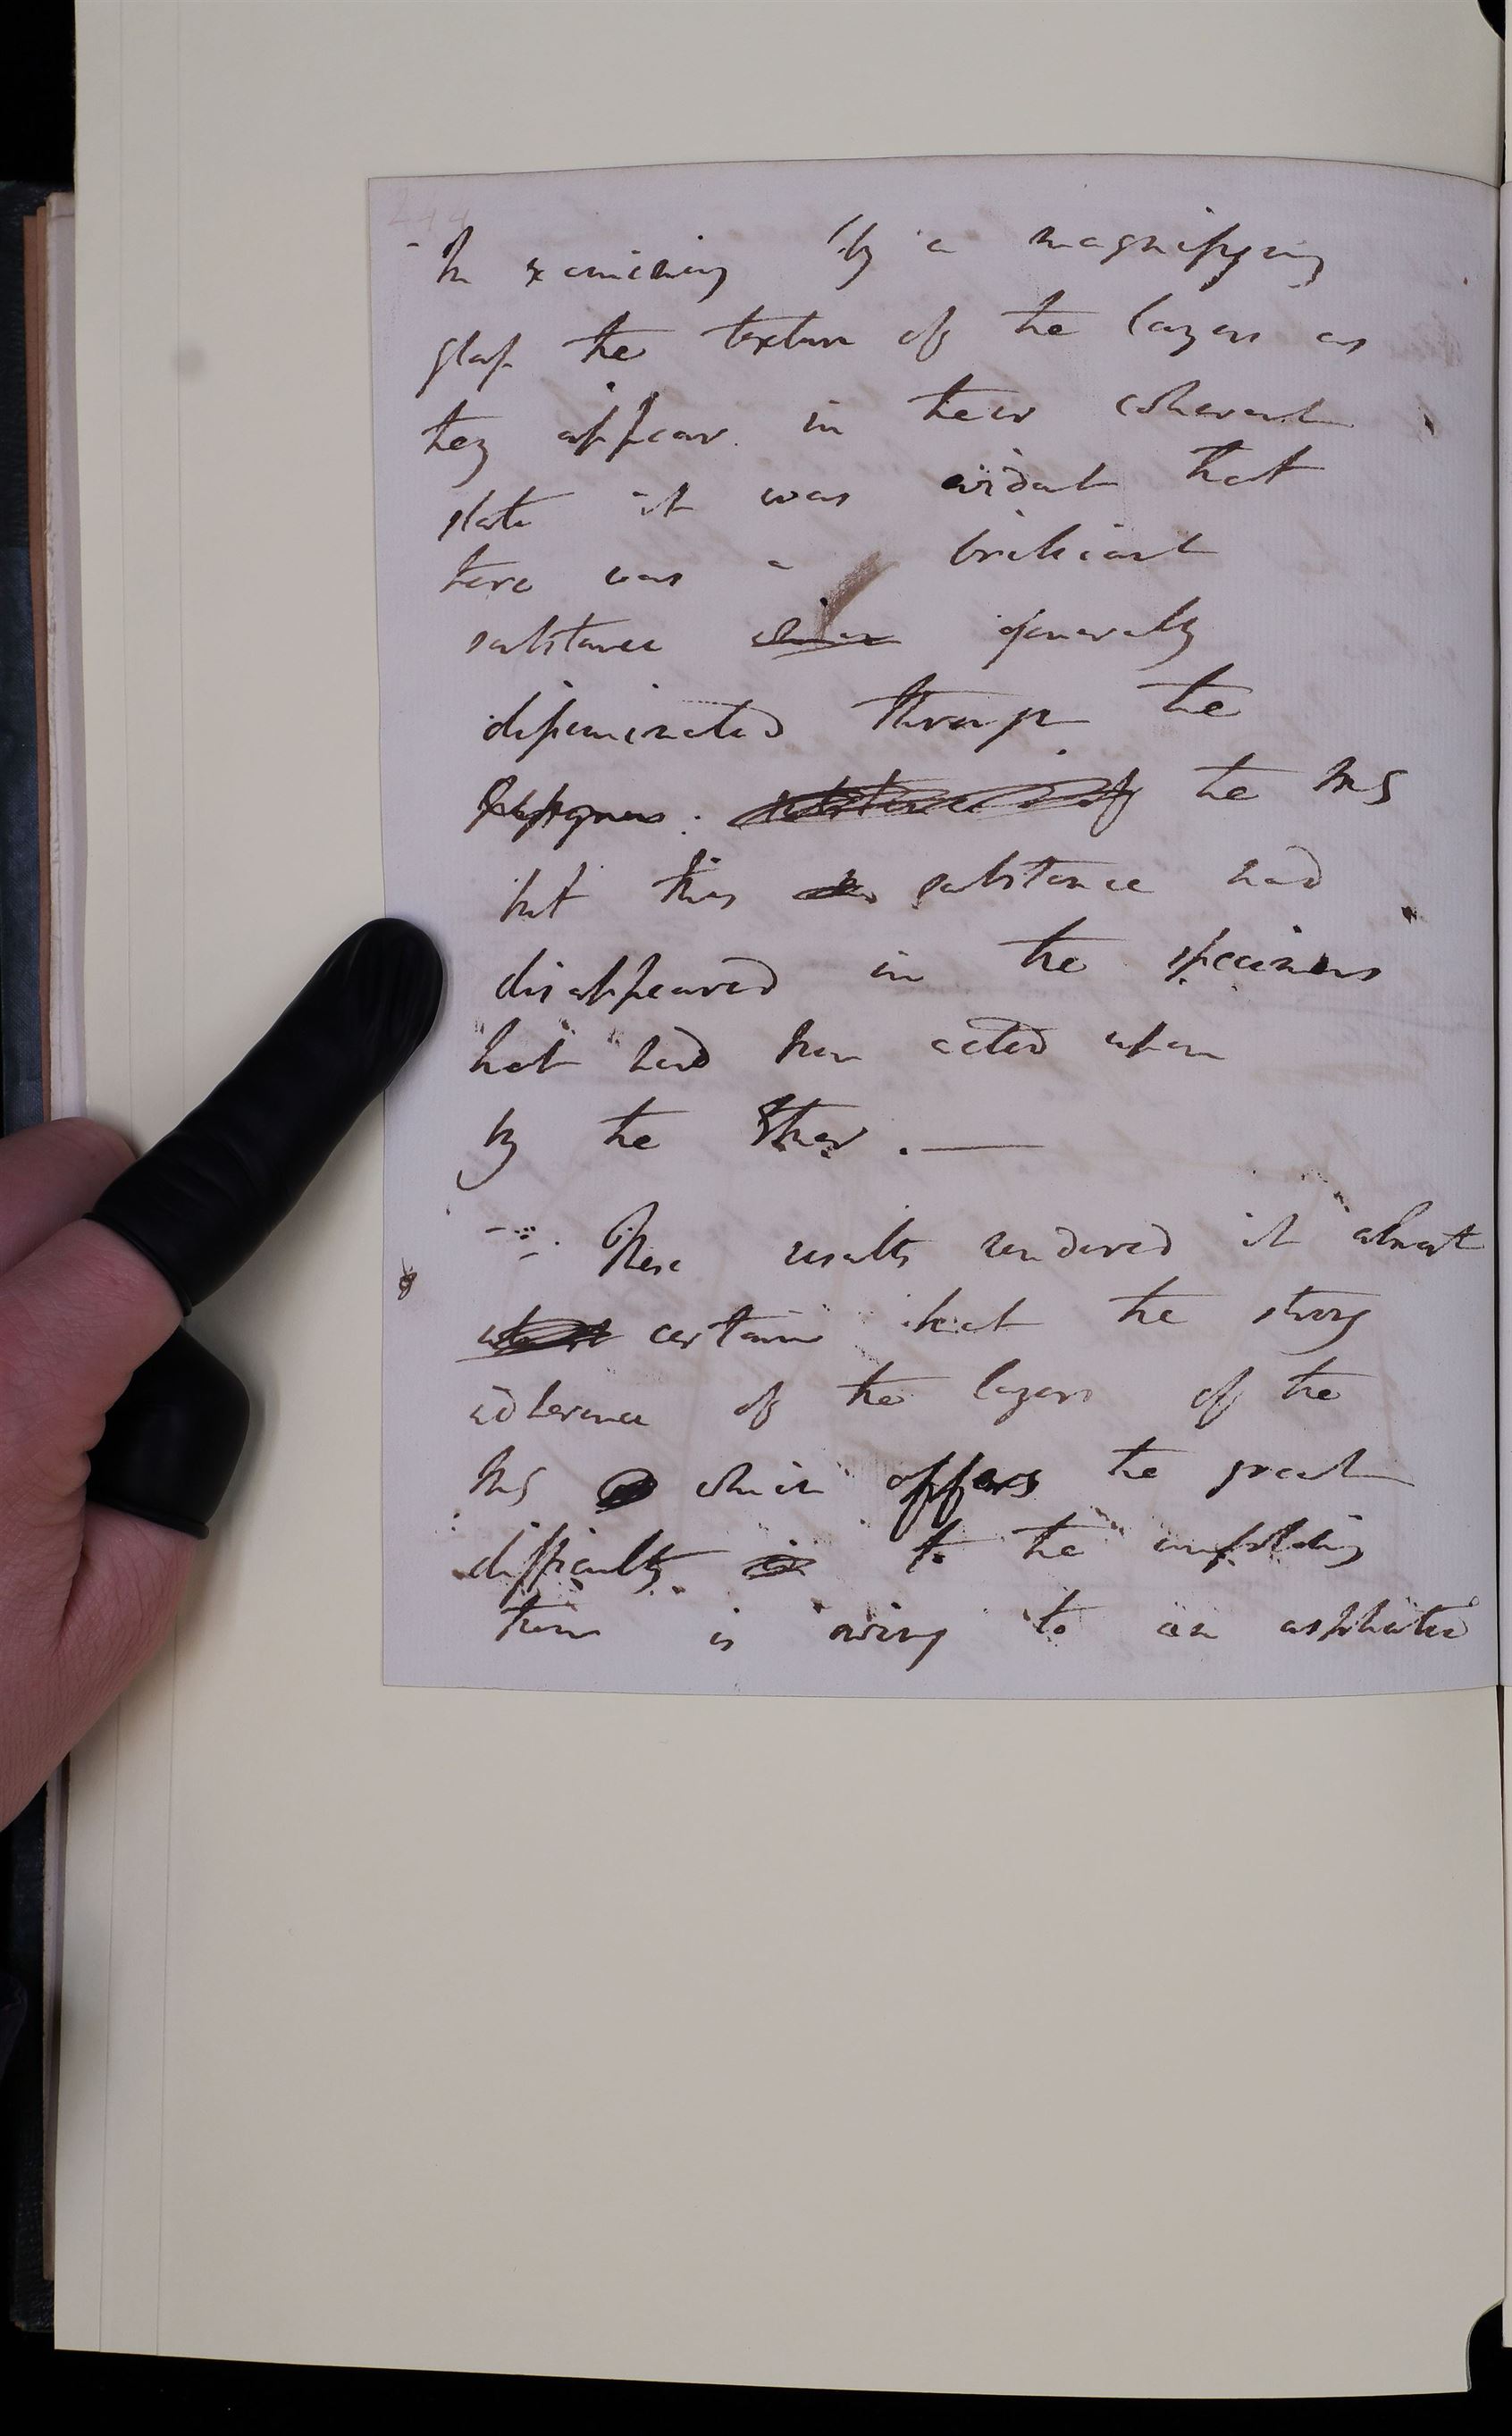 244
- In examining by a magnifying
glass the texture of the layers as
they appear in their coherent
state it was evident that
there was a brilliant
substance which generally
disseminated through the
the MS
but this substance had
disappeared in the specimens
that had been acted upon
by the Ether. —
These results rendered it almost
almost certain that the strong
adherence of the layers of the
MS which offers the great
difficulty in to the unfolding
them is owing to an asphaltic